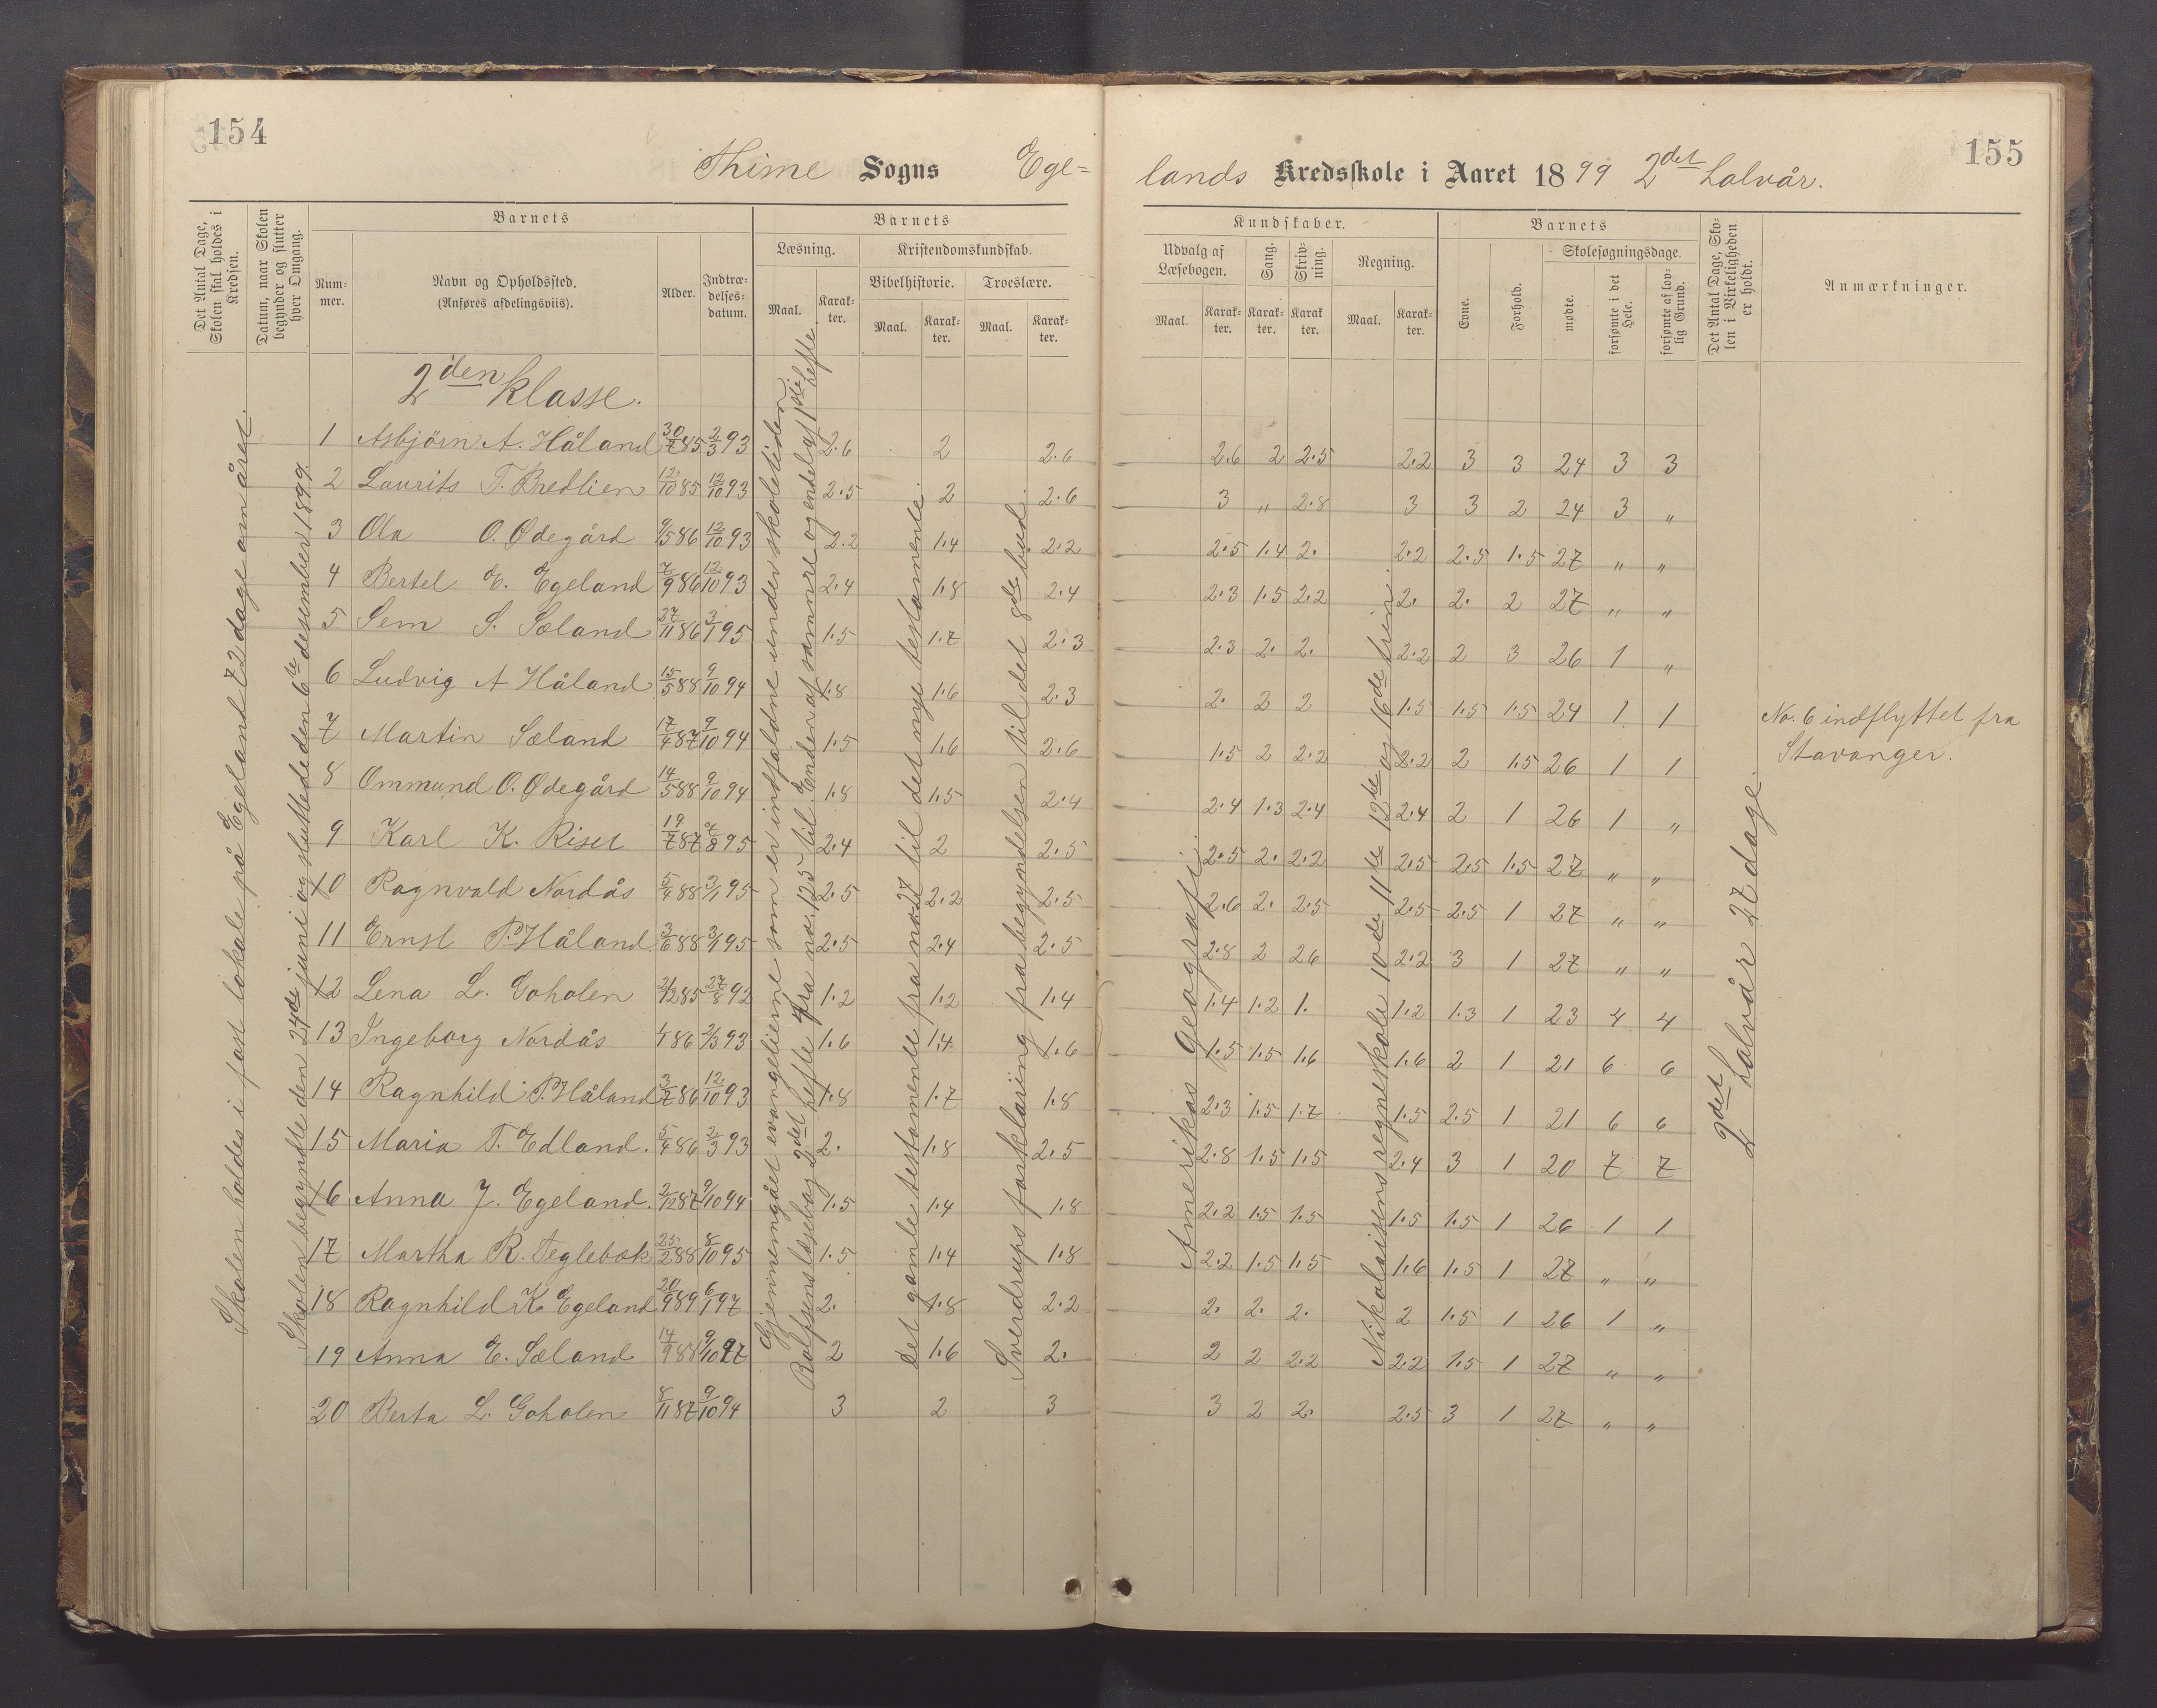 154
Thime Sogns Ege=
155
lands Kredsskole i Aaret 1899 2det halvår.
Det Antal Dage, Skolen skal holdes i Kredsen.
Datum, naar Skolen begynder og slutter hver Omgang.
Num-mer.
Barnets
Navn og Opholdssted.
(Anføres afdelingsviis).
Alder.
Indtræ-delses-datum.
Barnets
Læsning.
Maal.
Karak-ter.
Kristendomskundskab.
Bibelhistorie.
Maal.
Karak-ter.
Troeslære.
Maal.
Karak-ter.
Kundskaber.
Udvalg af Læsebogen.
Maal.
Karak-ter.
Sang.
Karak-ter.
Skriv-ning.
Karak ter.
Regning.
Maal.
Karak-ter.
Barnets
Evne.
Forhold.
Skolesøgningsdage.
mødte.
forsømte i det Hele.
forsømte af lov-lig Grund.
Det Antal Dage, Sko-len i Virkeligheden er holdt.
Anmærkninger.
Skolen holdes i fast lokale på Egeland 72 dage om året.
Skolen begyndte den 24de juni og sluttede den 6te desember 1899.
Gjennemgået evangelierne som er indfaldne under skoletiden
Rolfsens læsebog 2det hefte fra no. 125 til Enden af samme og endel af 1ste hefte.
Det gamle testamente fra no. 27 til det nye testamente.
Sverdrups forklaring fra begyndelsen til det 8de bud.
Amerikas Geografi.
Nikolaisens regneskole 10de 11te 12te og 16de trin.
2det halvår 27 dage.
2den klasse.
1 Asbjörn A. Håland 30/7 85 2/3 93 2.6 2 2.6 2.6 2 2.5 2.2 3 3 24 3 3
2 Laurits T. Bredlien 12/10 85 12/10 93 2.5 2 2.6 3 " 2.8 3 3 2 24 3 "
3 Ola O. Ødegård 9/5 86 12/10 93 2.2 1.4 2.2 2.5 1.4 2. 2.2 2.5 1.5 27 " "
4 Bertel E. Egeland 7/9 86 12/10 93 2.4 1.8 2.4 2.3 1.5 2.2 2. 2. 2 27 " "
5 Sem S. Sæland 27/11 86 3/1 95 1.5 1.7 2.3 2.3 2. 2. 2.2 2 3 26 1 "
6 Ludvig A Håland 15/5 88 9/10 94 1.8 1.6 2.3 2. 2 2 1.5 1.5 1.5 24 1 1
7 Martin Sæland 17/4 87 9/10 94 1.5 1.6 2.6 1.5 2 2.2 2.2 2 1.5 26 1 1
8 Ommund O. Ødegård 14/5 88 9/10 94 1.8 1.5 2.4 2.4 1.3 2.4 2.4 2 1 26 1 "
9 Karl K. Riset 19/7 87 7/8 95 2.4 2 2.5 2.5 2. 2.2 2.5 2.5 1.5 27 " "
10 Ragnvald Nordås 5/4 88 3/1 95 2.5 2.2 2.5 2.6 2. 2.5 2.5 2.5 1 27 " "
11 Ernst P. Håland 3/6 88 3/1 95 2.5 2.4 2.5 2.8 2 26 2.2 3 1 27 " "
12 Lena L. Goholen 2/12 85 27/8 92 1.2 1.2 1.4 1.4 1.2 1. 1.2 1.3 1 23 4 4
13 Ingeborg Nordås 86 2/3 93 1.6 1.4 1.6 1.5 1.5 1.6 1.6 2 1 21 6 6
14 Ragnhild P. Håland 3/7 86 12/10 93 1.8 1.7 1.8 2.3 1.5 1.7 1.5 2.5 1 21 6 6
15 Maria T. Edland. 5/4 86 2/3 93 2. 1.8 2.5 2.8 1.5 1.5 2.4 3 1 20 7 7
16 Anna J. Egeland. 2/12 87 9/10 94 1.5 1.4 1.8 2.2 1.5 1.5 1.5 1.5 1 26 1 1
17 Martha R. Teglebæk 25/2 88 8/10 95 1.5 1.4 1.8 2.2 1.5 1.5 1.6 1.5 1 27 " "
18 Ragnhild K. Egeland 20/9 89 6/1 97 2. 1.8 2.2 2. 2. 2. 2 1.5 1 26 1 "
19 Anna E. Sæland 14/9 88 9/10 97 2 1.6 2. 2 2 2.2 2.2 1.5 1 27 " "
20 Berta L. Goholen 8/11 87 9/10 94 3 2 3 3 2 2. 2.5 3 1 27 " "
No. 6 indflyttet fra
Stavanger.